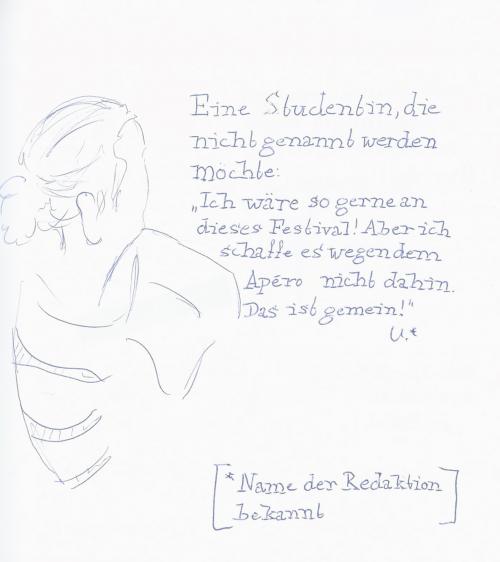 Eine Studentin, die
nicht genannt werden
möchte:
„Ich wäre so gerne an
dieses Festival! Aber ich
schaffe es wegen dem
Apéro nicht dahin.
Das ist gemein!“
U.*
[*Name der Redaktion
bekannt]